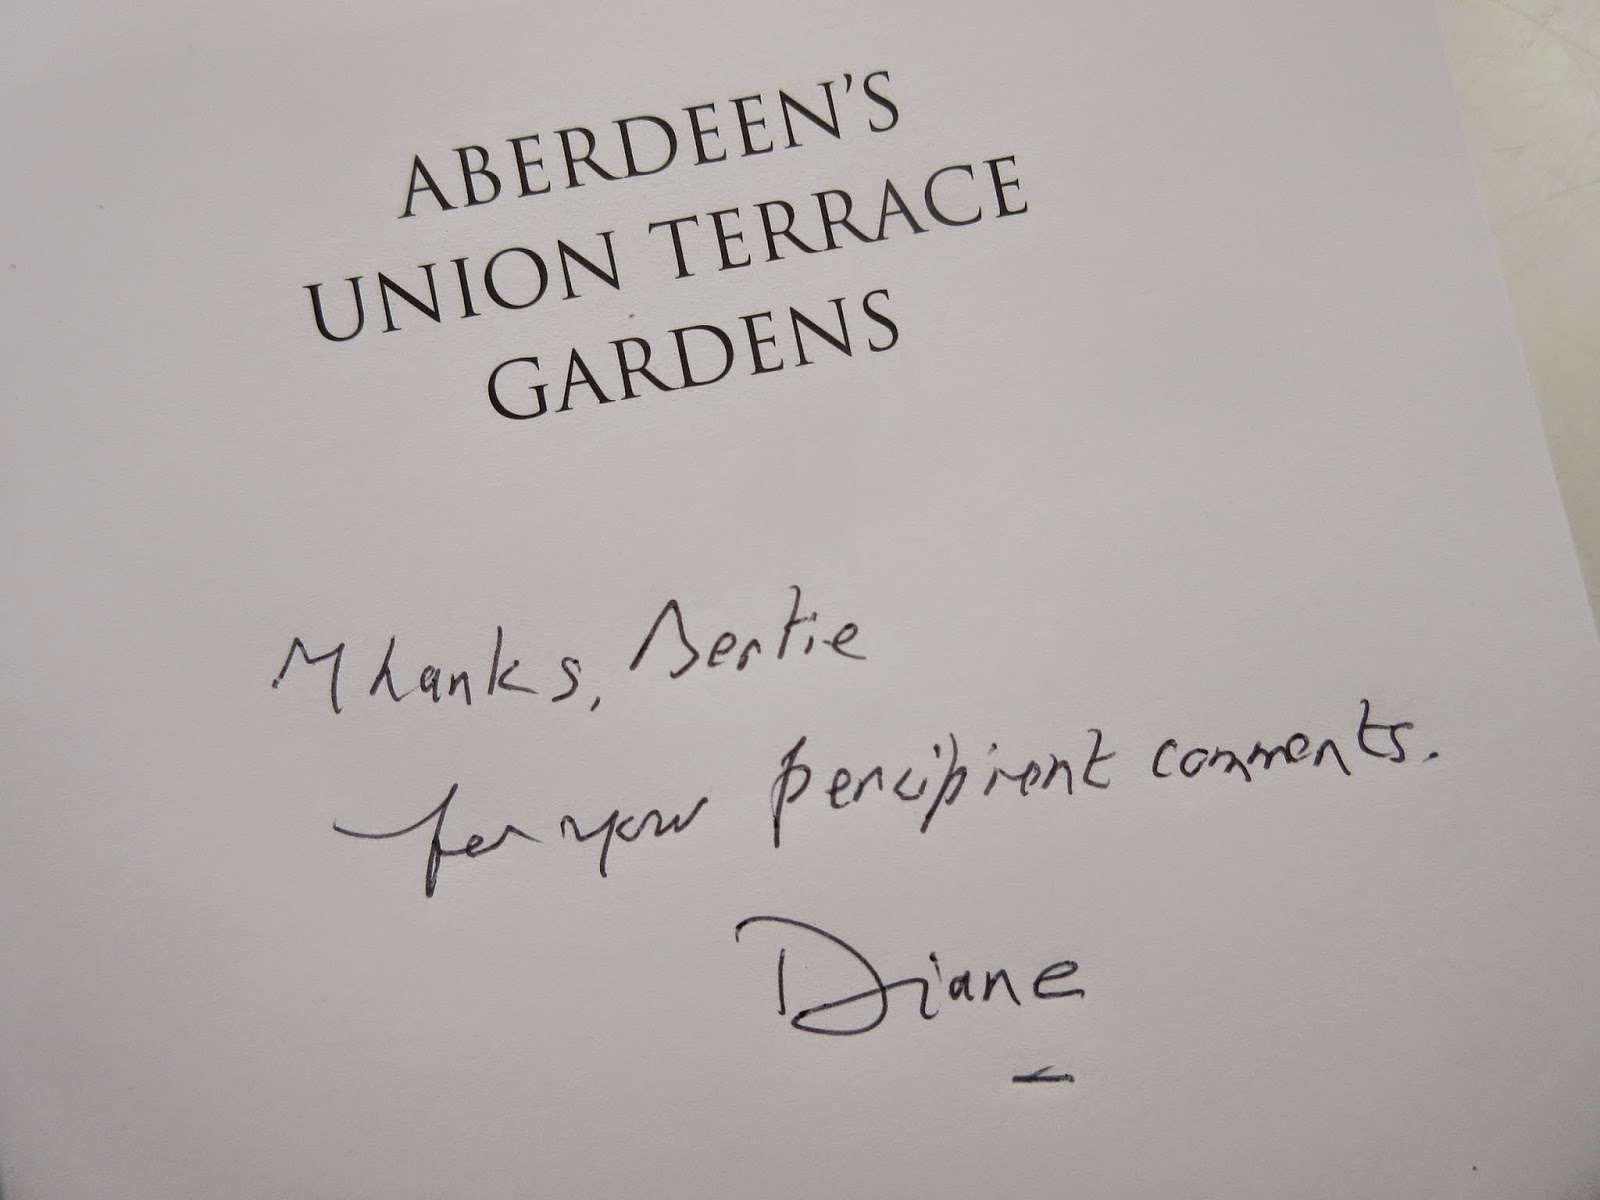 ABERDEEN'S
UNION TERRACE
GARDENS
Thanks, Bertie
for your percipient comments.
Diane